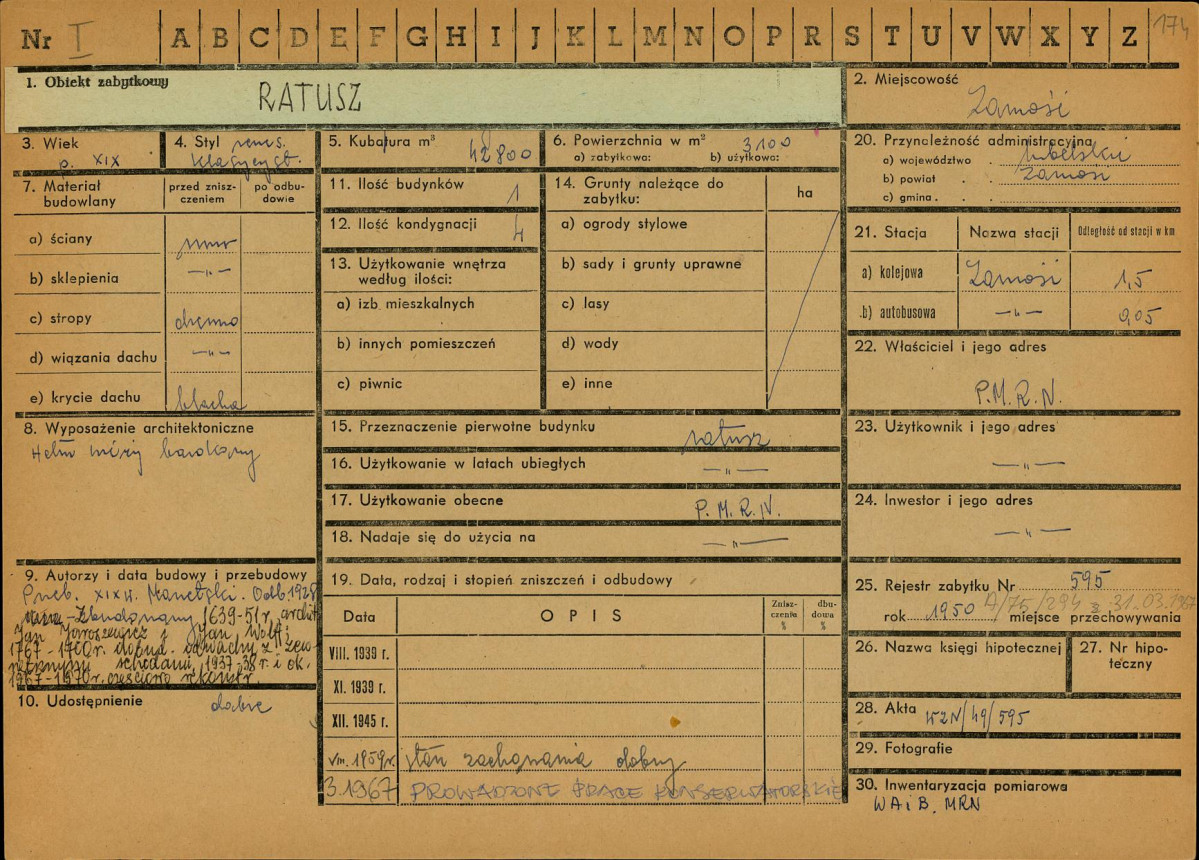 Nr I A B C D E F G H I J K L M N O P R S T U V W X Y Z 174
1. Obiekt zabytkowy
RATUSZ
2. Miejscowość
Zamość
3. Wiek
p. XIX
4. Styl rens.
klasycyst.
5. Kubatura m³
42800
6. Powierzchnia w m² 3100
a) zabytkowa: b) użytkowa:
20. Przynależność administracyjna
a) województwo . lubelskie
b) powiat . . Zamość
c) gmina . . .
7. Materiał budowlany
przed znisz-
czeniem
po odbu-
dowie
a) ściany mur
b) sklepienia —„—
c) stropy drewno
d) wiązania dachu —„—
e) krycie dachu blacha
11. Ilość budynków 1
12. Ilość kondygnacji 4
13. Użytkowanie wnętrza
według ilości:
a) izb mieszkalnych
b) innych pomieszczeń
c) piwnic
14. Grunty należące do
zabytku:
ha
a) ogrody stylowe
b) sady i grunty uprawne
c) lasy
d) wody
e) inne
21. Stacja Nazwa stacji Odległość od stacji w km
a) kolejowa Zamość 1,5
b) autobusowa —„— 0,05
22. Właściciel i jego adres
P.M.R.N.
8. Wyposażenie architektoniczne
Hełm wieży barokowy
15. Przeznaczenie pierwotne budynku ratusz
16. Użytkowanie w latach ubiegłych —„—
17. Użytkowanie obecne P.M.R.N.
18. Nadaje się do użycia na —„—
23. Użytkownik i jego adres
—„—
24. Inwestor i jego adres
—„—
9. Autorzy i data budowy i przebudowy
Przeb. XIX w. Odb. 1928
Zbudowany 1639-51 r. archit.
Jan Jaroszewicz i Jan Wolff;
1767-1770 r. dobud. odwachu z zew-
nętrznymi schodami, 1937-38 r. i ok.
1967-1970 r. częściowo rekonstr.
10. Udostępnienie dobre
19. Data, rodzaj i stopień zniszczeń i odbudowy
Data OPIS Znisz-
czenie
% dbu-
dowa
%
VIII. 1939 r.
XI. 1939 r.
XII. 1945 r.
VIII. 1959 r. stan zachowania dobry
3.1967 PROWADZONE PRACE KONSERWATORSKIE
25. Rejestr zabytku Nr 595
A/75/294 z 31.03.1967
rok 1950 miejsce przechowywania
26. Nazwa księgi hipotecznej
27. Nr hipo-
teczny
28. Akta WZN/49/595
29. Fotografie
30. Inwentaryzacja pomiarowa
WAiB. MRN